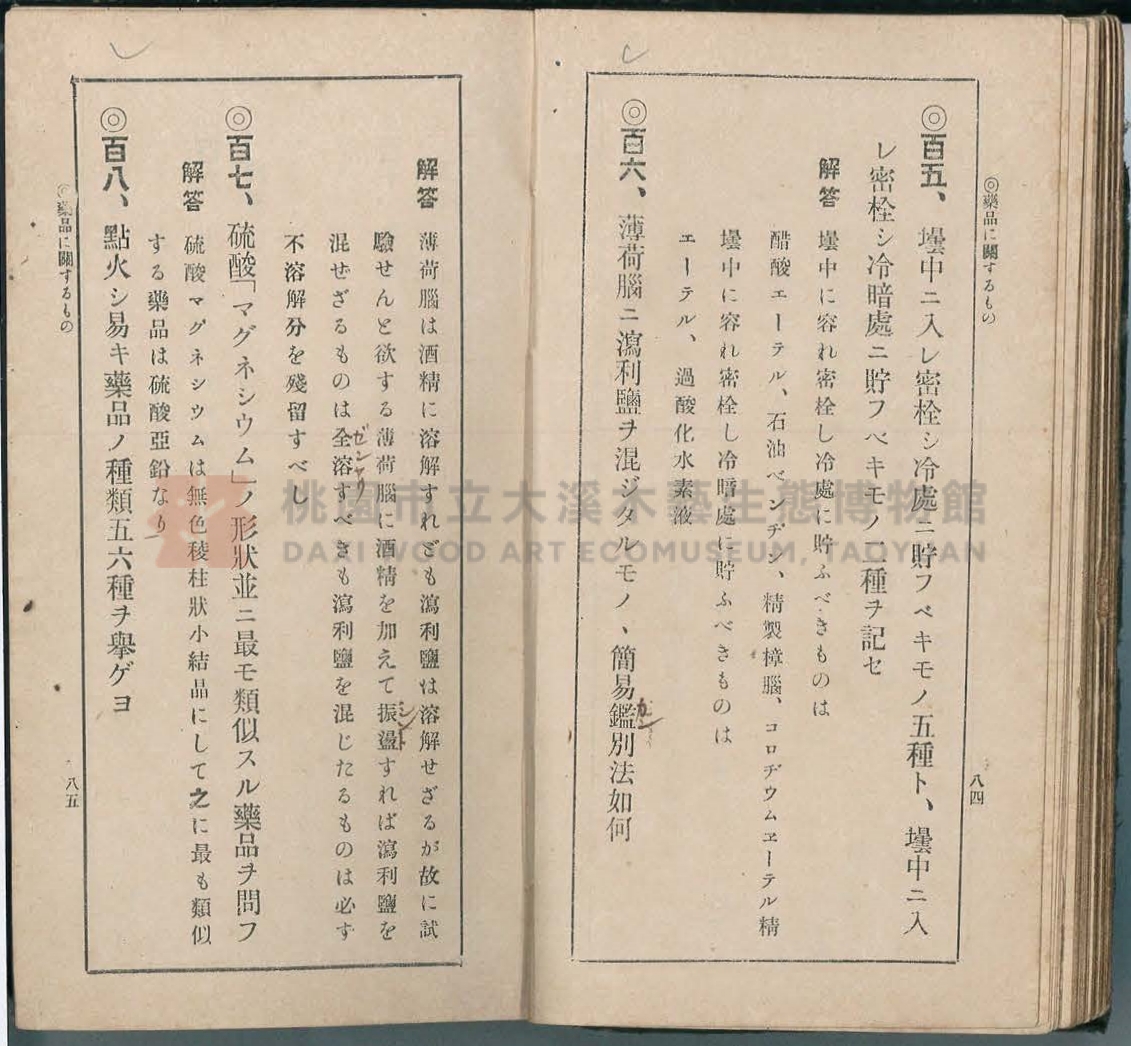 ◎藥品に關するもの
八四
◎百五、壜中ニ入レ密栓シ冷處ニ貯フベキモノ五種ト、壜中ニ入
レ密栓シ冷暗處ニ貯フベキモノ二種ヲ記セ
解答 壜中に容れ密栓し冷處に貯ふべきものは
醋酸エーテル、石油ベンヂン、精製樟腦、コロヂウムヱーテル精
壜中に容れ密栓し冷暗處に貯ふべきものは
エーテル、過酸化水素液
◎百六、薄荷腦ニ瀉利鹽ヲ混ジタルモノヽ簡易鑑別法如何
カン
解答 薄荷腦は酒精に溶解すれども瀉利鹽は溶解せざるが故に試
驗せんと欲する薄荷腦に酒精を加えて振盪すれば瀉利鹽を
混せざるものは全溶すべきも瀉利鹽を混じたるものは必ず
不溶解分を殘留すべし
◎百七、硫酸「マグネシウム」ノ形狀並ニ最モ類似スル藥品ヲ問フ
解答 硫酸マグネシウムは無色稜柱狀小結晶にして之に最も類似
する藥品は硫酸亞鉛なり
◎百八、點火シ易キ藥品ノ種類五六種ヲ擧ゲヨ
◎藥品に關するもの
八五
桃園市立大溪木藝生態博物館
DAXI WOOD ART ECOMUSEUM, TAOYUAN